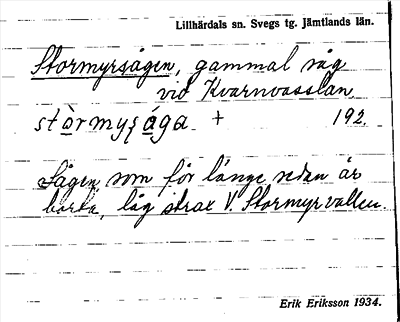 Lillhärdals sn. Svegs tg. Jämtlands län.
Stormyrsågen, gammal såg
vid Kvarnvasslan
stòrmyşága + 192.
Sågen som för länge sedan är
borta, låg strax V. Stormyrvallen.
Erik Eriksson 1934.